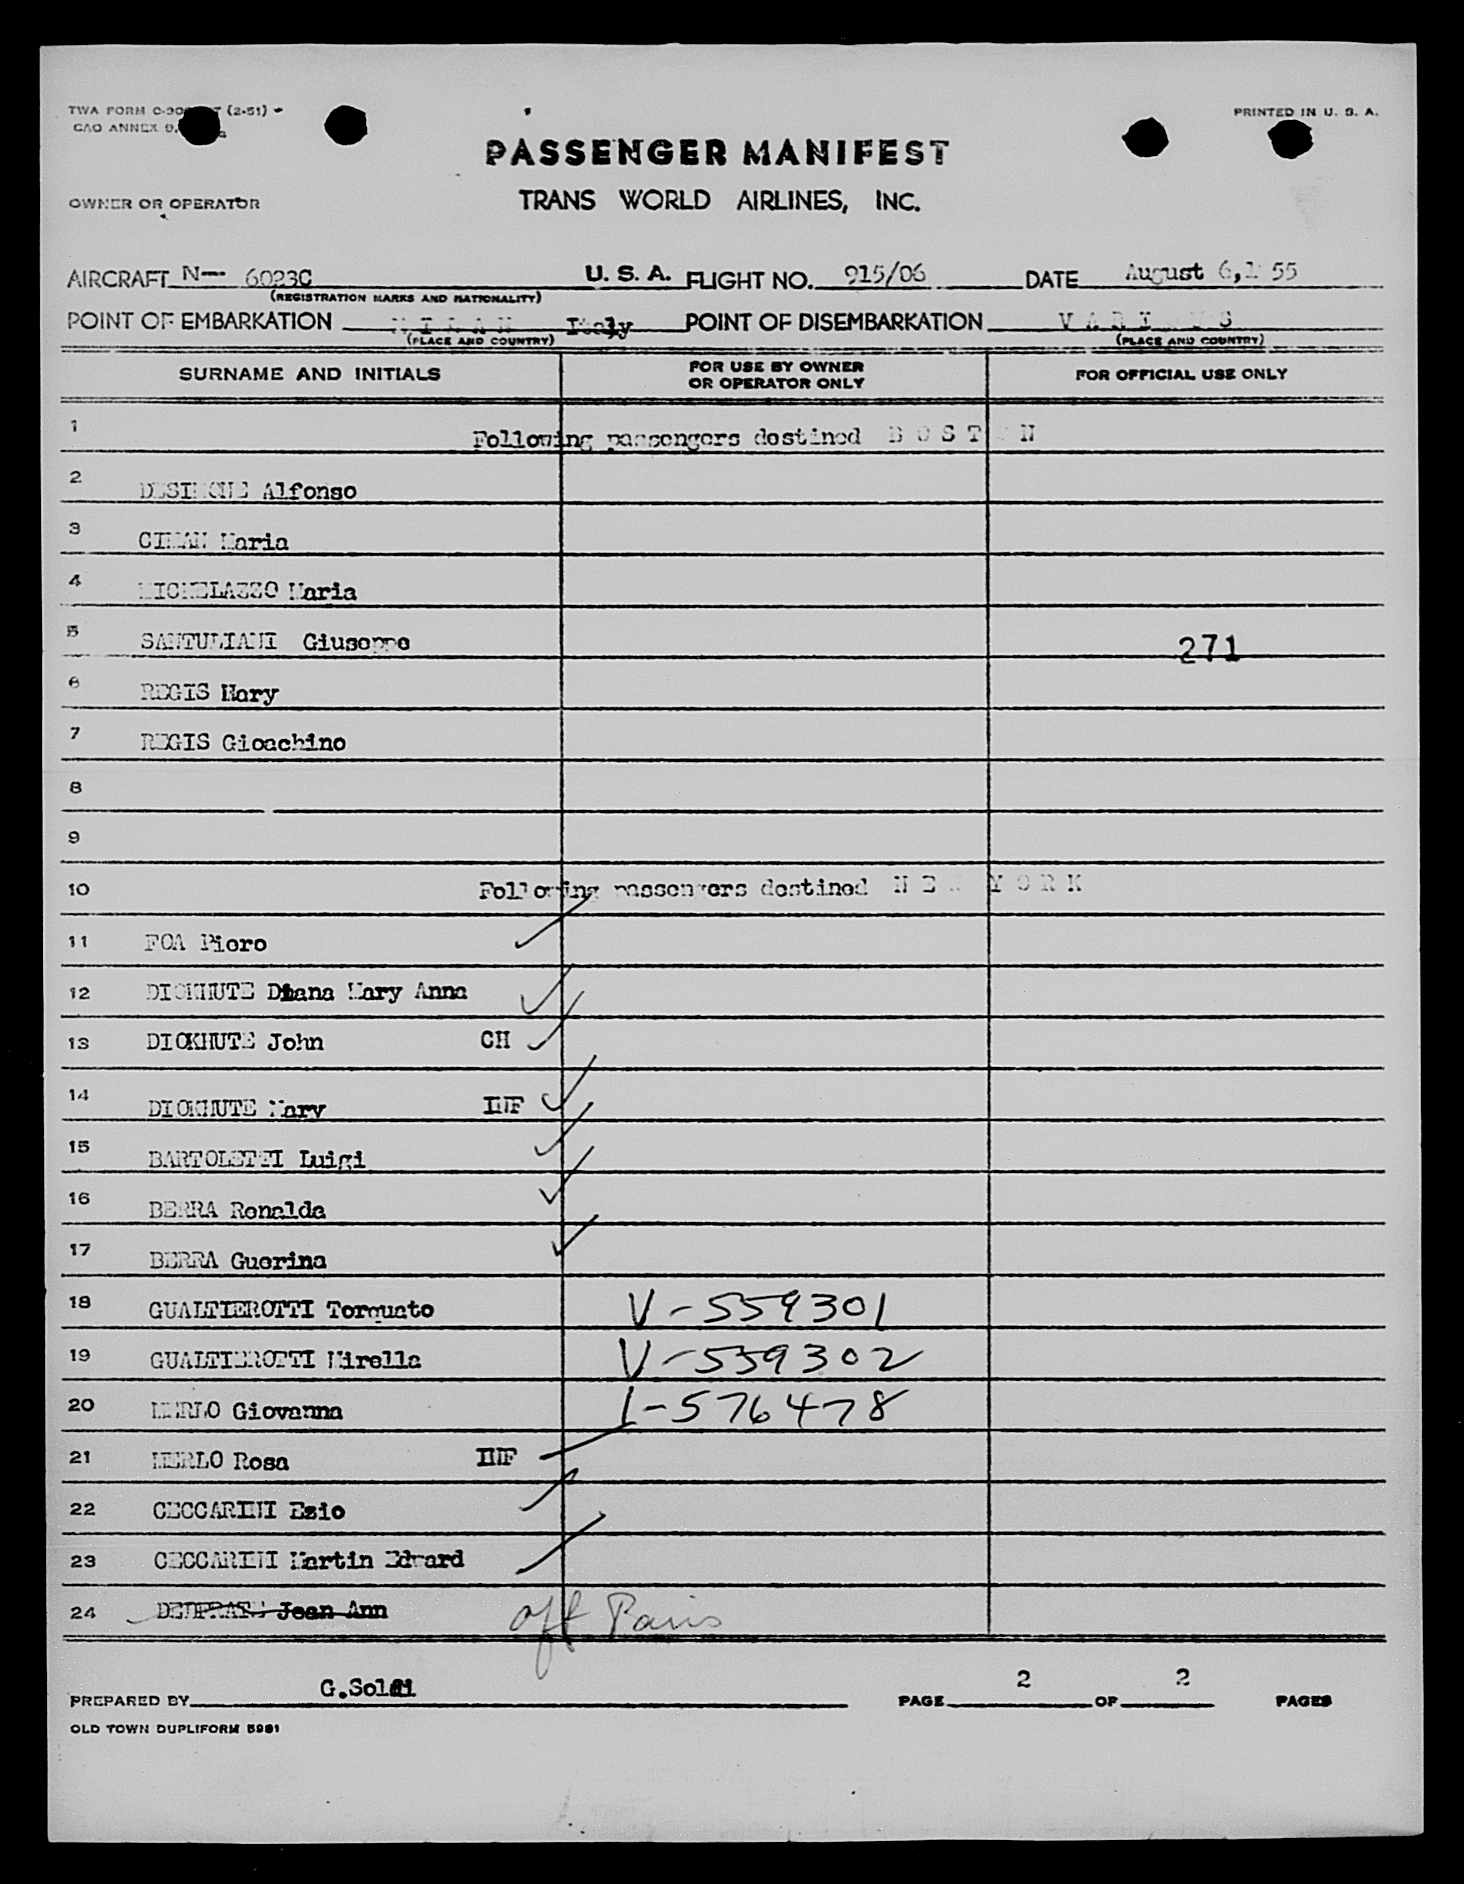 TWA FORM (2-51)
CAO ANNEX 9,
PRINTED IN U. S. A.
PASSENGER MANIFEST
OWNER OR OPERATOR
TRANS WORLD AIRLINES, INC.
AIRCRAFT N- 6023C U. S. A. FLIGHT NO. 915/06 DATE August 6, 1955
(REGISTRATION MARKS AND NATIONALITY)
POINT OF EMBARKATION M I L A N Italy POINT OF DISEMBARKATION V A R I O U S
(PLACE AND COUNTRY) (PLACE AND COUNTRY)
SURNAME AND INITIALS FOR USE BY OWNER OR OPERATOR ONLY FOR OFFICIAL USE ONLY
1 Following passengers destined B O S T O N
2 DESIMONE Alfonso
3 CIMAN Maria
4 MICHELAZZO Maria
5 SANTULIANI Giuseppe 271
6 REGIS Mary
7 REGIS Gioachino
8
9
10 Following passengers destined N E W Y O R K
11 FOA Piero
12 DICKHUTE Diana Mary Anna
13 DICKHUTE John CH
14 DICKHUTE Mary INF
15 BARTOLETTI Luigi
16 BERRA Ronalda
17 BERRA Guerina
18 GUALTIEROTTI Torquato V-559301
19 GUALTIEROTTI Mirella V-559302
20 MERLO Giovanna I-576478
21 MERLO Rosa INF
22 CECCARINI Ezio
23 CECCARINI Martin Edward
24 Jean Ann off Paris
PREPARED BY G.Soldi PAGE 2 OF 2 PAGES
OLD TOWN DUPLIFORM 5981